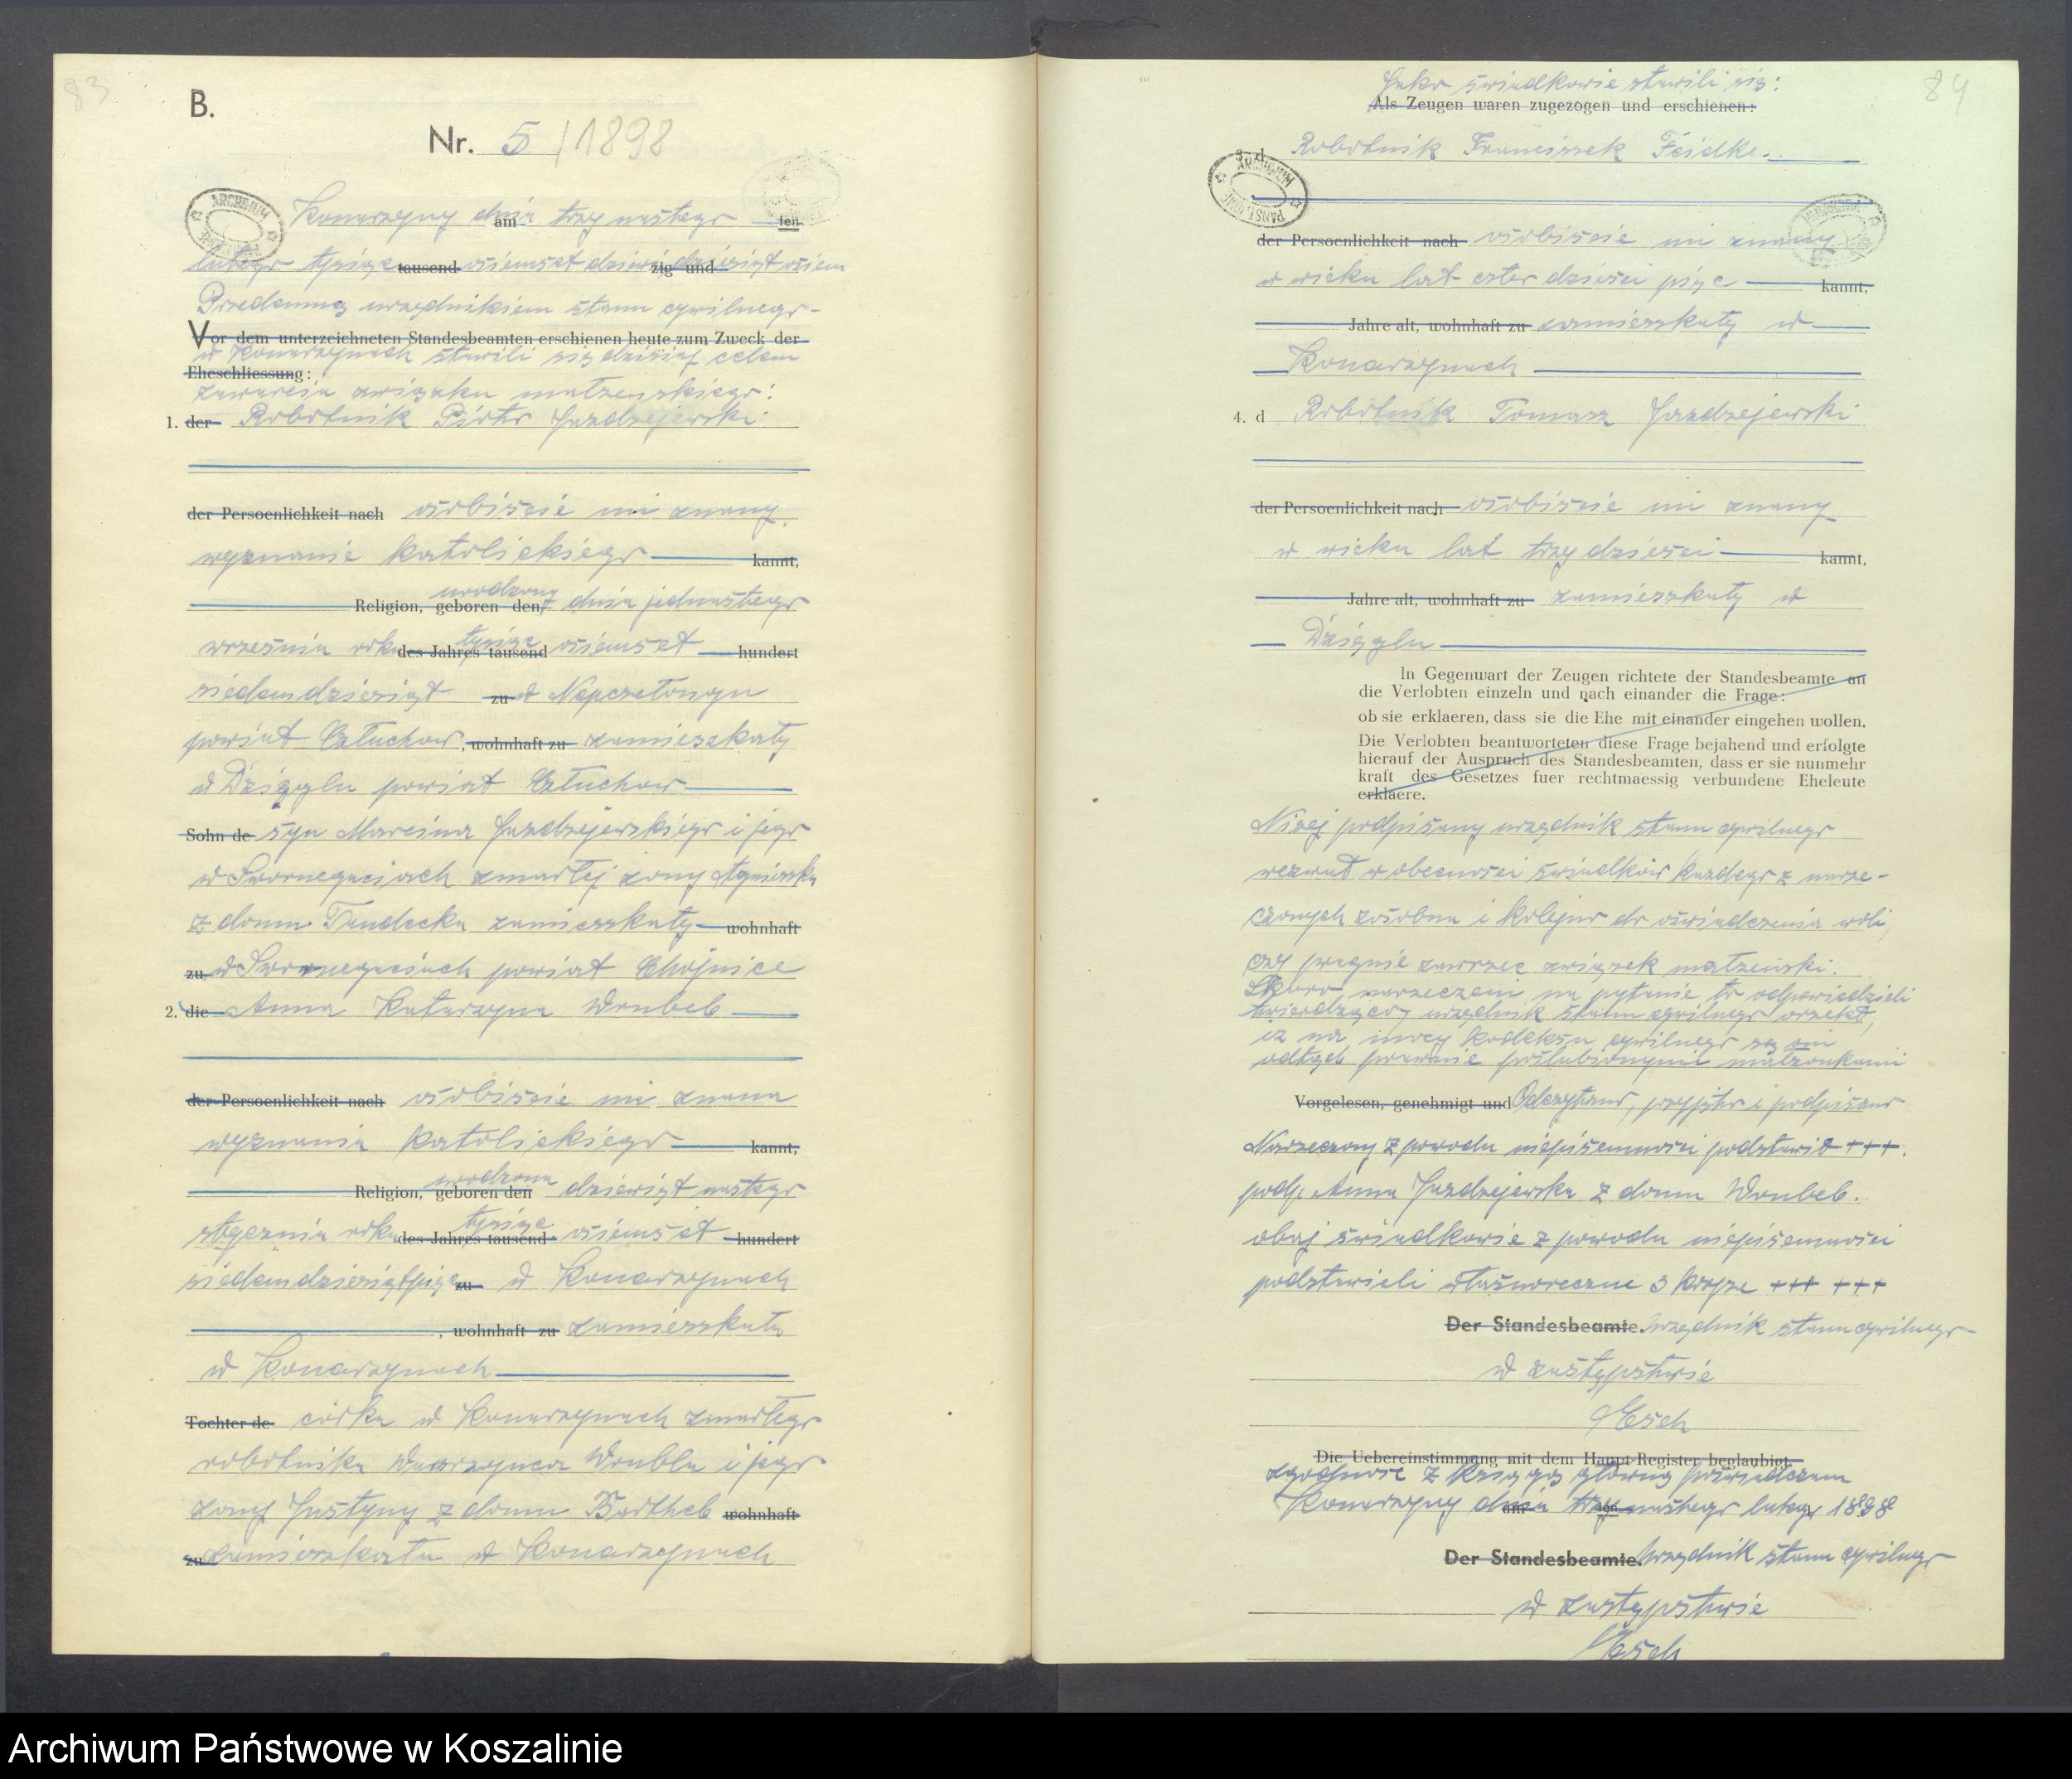 83
B.
Nr. 5/1898
Konarzyny dnia am trzynastego ten
lutego tysiąc tausend osiemset dziewięćdziesiąt zig und osiem
Przedemną urzędnikiem stanu cywilnego -
Vor dem unterzeichneten Standesbeamten erschienen heute zum Zweck der
w Konarzynach stawili się dzisiaj celem
Eheschliessung:
zawarcia związku małżeńskiego:
1. der Robotnik Piotr Jazdzejewski
der Persoenlichkeit nach osobiście mi znany,
wyznanie katolickiego kannt,
urodzony
Religion, geboren den dnia jednastego
września roku des Jahres tausend tysiąc osiemset hundert
siedemdziesiąt zu w
powiat Człuchow, wohnhaft zu zamieszkały
w Dzięglu powiat Człuchow
Sohn de syn Marcina Jazdzejewskiego i jego
w Swornegaciach zmarłej żony Agnieszka
z domu zamieszkały wohnhaft
zu w Swornegaciach powiat Chojnice
2. die Anna Katarzyna Wrubel
der Persoenlichkeit nach osobiście mi znana
wyznania katolickiego kannt,
urodzona
Religion, geboren den dziewiętnastego
stycznia roku des Jahres tausend tysiąc osiemset hundert
siedemdziesiątpięć zu w Konarzynach
, wohnhaft zu zamieszkała
w Konarzynach
Tochter de córka w Konarzynach zmarłego
robotnika Wawrzynca Wrubla i jego
żony Justyny z domu Barthel wohnhaft
zu zamieszkała w Konarzynach
84
Jako świadkowie stawili się:
Als Zeugen waren zugezogen und erschienen:
3. d Robotnik Franciszek Feidke
der Persoenlichkeit nach osobiście mi znany
w wieku lat czterdzieści pięc kannt,
Jahre alt, wohnhaft zu zamieszkały w
Konarzynach
4. d Robotnik Tomasz Jazdzejewski
der Persoenlichkeit nach osobiście mi znany
w wieku lat trzydzieści kannt,
Jahre alt, wohnhaft zu zamieszkały w
Dzięglu
In Gegenwart der Zeugen richtete der Standesbeamte an
die Verlobten einzeln und nach einander die Frage:
ob sie erklaeren, dass sie die Ehe mit einander eingehen wollen.
Die Verlobten beantworteten diese Frage bejahend und erfolgte
hierauf der Auspruch des Standesbeamten, dass er sie nunmehr
kraft des Gesetzes fuer rechtmaessig verbundene Eheleute
erklaere.
Niżej podpisany urzędnik stanu cywilnego
wezwał w obecności świadków każdego z narze-
czonych zosobna i kolejno do oświadczenia woli,
czy pragnie zawrzec związek małżeński.
Skoro narzeczeni na pytanie to odpowiedzieli
twierdzącoj urzędnik stanu cywilnego orzekł,
iż na mocy kodeksu cywilnego są oni
odtąd prawnie poślubionymi małżonkami
Vorgelesen, genehmigt und Odczytano, przyjęto i podpisano
Narzeczony z powodu niepiśmienności podstawił +++.
podp. Anna Jazdzejewska z domu Wrubel.
obaj świadkowie z powodu niepiśmienności
podstawieli własnoręcznie 3 krzyże +++ +++
Der Standesbeamte. Urzędnik stanu cywilnego
w zastępstwie
Esch
Die Uebereinstimmung mit dem Haupt-Register beglaubigt
zgodność z księgą główną poświadczam
Konarzyny dnia am trzynastego ten lutego 1898
Der Standesbeamte. Urzędnik stanu cywilnego
w zastępstwie
Esch
Archiwum Państwowe w Koszalinie